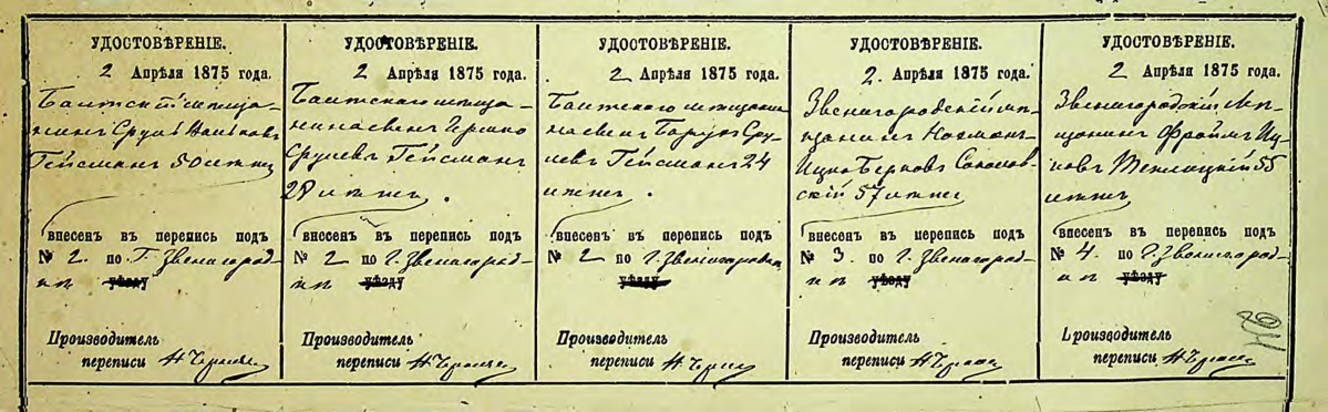 УДОСТОВѢРЕНІЕ.
2 Апрѣля 1875 года.
нинъ Сруль
Гейсманъ 50 лѣтъ
внесенъ въ перепись подъ
№ 2. по Г. Звенигород-
кѣ уѣзду
Производитель
переписи Н
УДОСТОВѢРЕНІЕ.
2 Апрѣля 1875 года.
Гершко
Срулевъ Гейсманъ
28 лѣтъ.
внесенъ въ перепись подъ
№ 2 по Г. Звенигород-
кѣ уѣзду
Производитель
переписи Н
УДОСТОВѢРЕНІЕ.
2 Апрѣля 1875 года.
Сру-
левъ Гейсманъ 24
лѣтъ.
внесенъ въ перепись подъ
№ 2 по Г. Звенигородкѣ
уѣзду
Производитель
переписи Н
УДОСТОВѢРЕНІЕ.
2. Апрѣля 1875 года.
Звенигородскій мѣ-
щанинъ
Ицко Берковъ Соколов-
скій 57 лѣтъ
внесенъ въ перепись подъ
№ 3. по Г. Звенигород-
кѣ уѣзду
Производитель
переписи Н
УДОСТОВѢРЕНІЕ.
2 Апрѣля 1875 года.
Звенигородскій мѣ-
щанинъ Фроимъ Иц-
ковъ 55
лѣтъ
внесенъ въ перепись подъ
№ 4. по Г. Звенигород-
кѣ уѣзду
Производитель
переписи Н